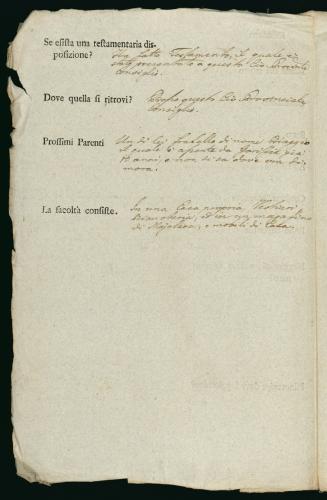 Se esista una testamentaria dis-
posizione? Ha fatto Testamento, il quale è
stato presentato a questo Ces: Provinciale
Consiglio.
Dove quella si ritrovi? Presso questo Ces: Provinciale
Consiglio.
Prossimi Parenti Un di lei fratello di nome Biaggio
il quale è assente da già
anni, e non si sa dove ora di-
mora.
La facoltà consiste. In una Casa propria, Vestiari
Biancheria, ed in un
di, e mobili di Casa.